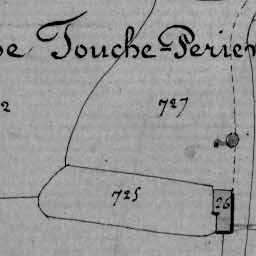 Touche-Perien
2
727
725
26